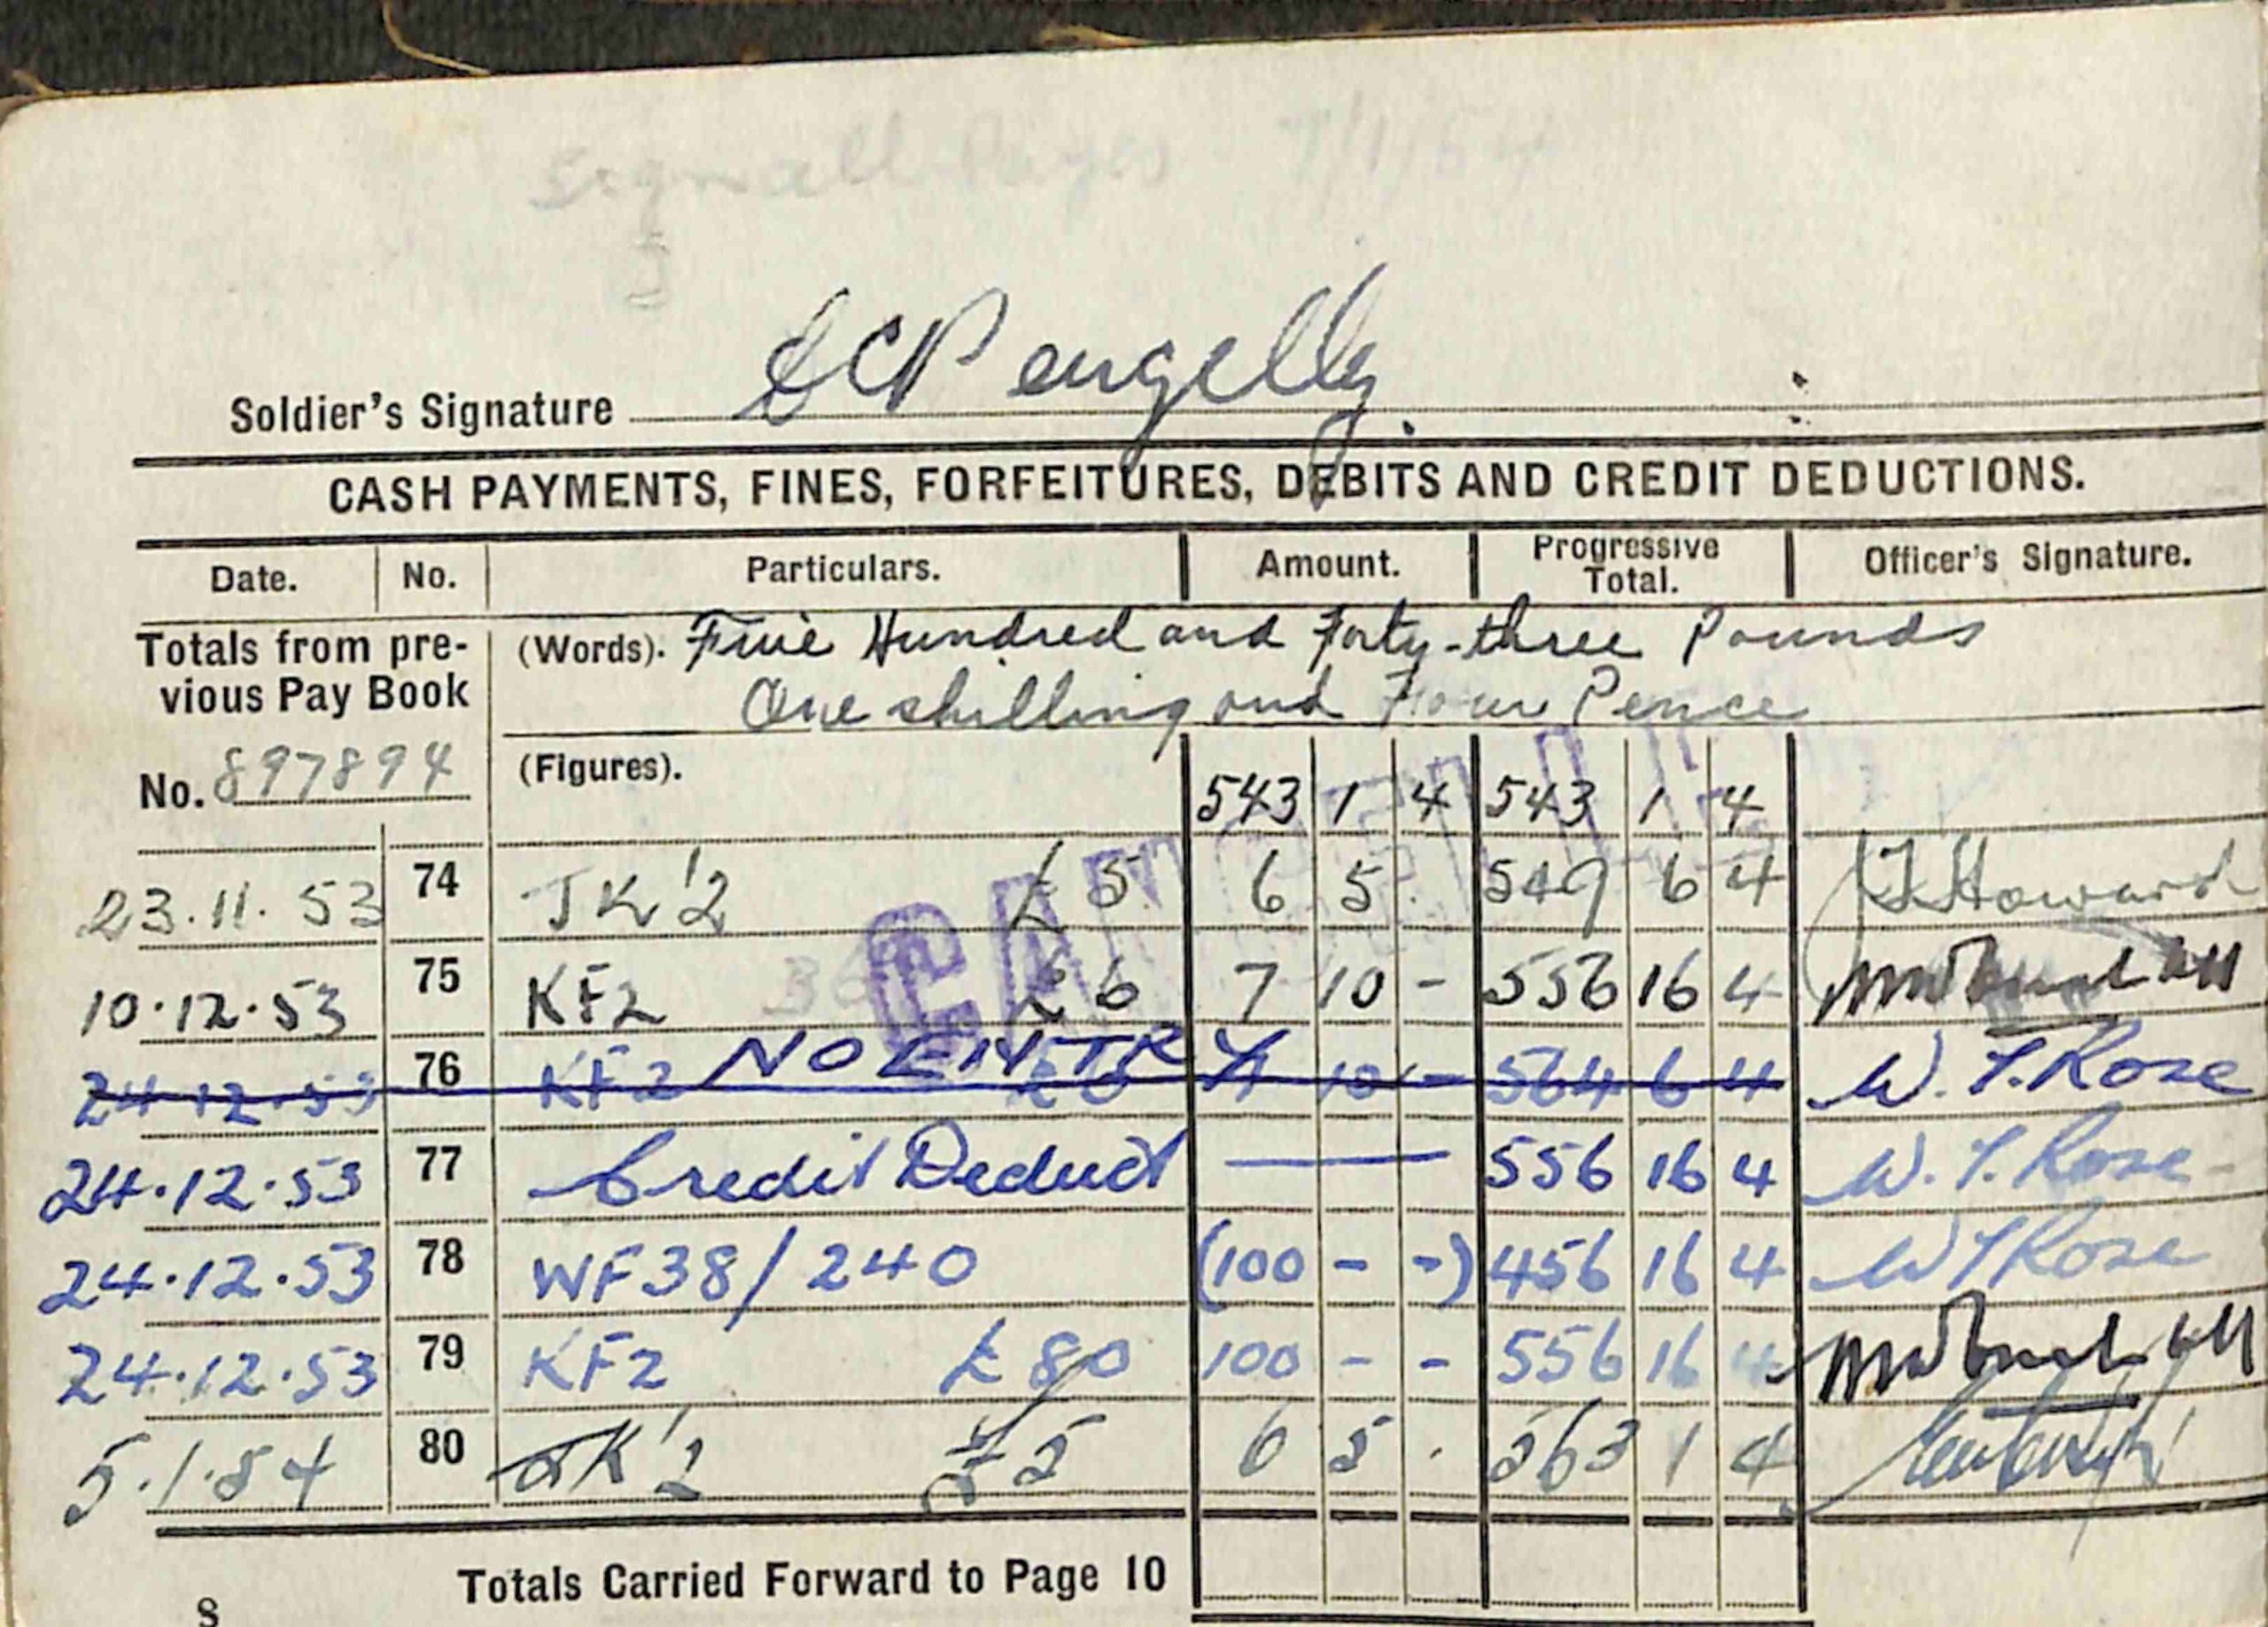 Sign all Pages 7/1/54
Soldier's Signature SCPengelly.
CASH PAYMENTS, FINES, FORFEITURES, DEBITS AND CREDIT DEDUCTIONS.
Date. No. Particulars. Amount. Progressive Total. Officer's Signature.
Totals from pre- (Words). Five Hundred and Forty-three Pounds
vious Pay Book One shilling and Four Pence
No. 897894 (Figures). 543 1 4 543 1 4
CANCELLED
23.11.53 74 JK'2 £5 6 5 . 549 6 4 Howard
10.12.53 75 KF2 £6 7 10 - 556 16 4
24.12.53 76 KF2 NO ENTRY £6 7 10 - 564 6 4 W.T.Rose
24.12.53 77 Credit Deduct — 556 16 4 W.T.Rose
24.12.53 78 WF38/240 (100 - -) 456 16 4 WTRose
24.12.53 79 KF2 £80 100 - - 556 16 4
5.1.54 80 JK'2 £5 6 5 . 563 1 4
Totals Carried Forward to Page 10
8